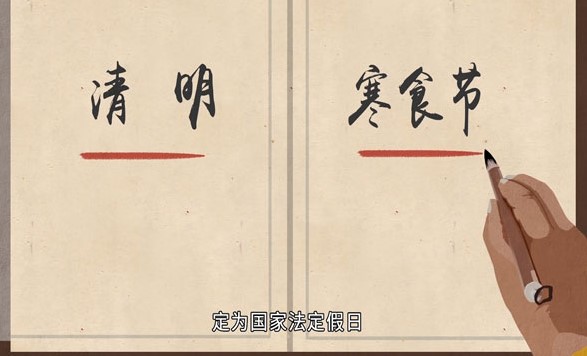 清明
寒食节
定为国家法定假日